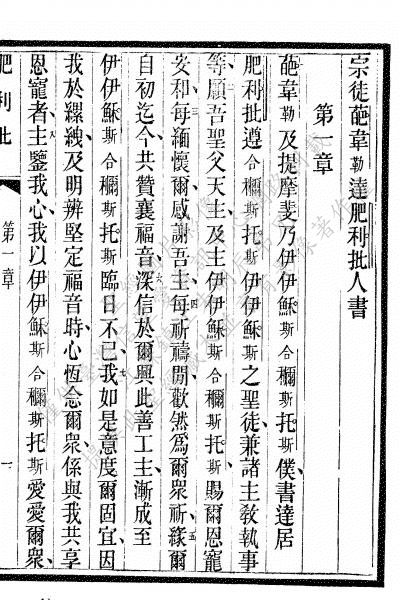 宗徒葩韋勒達肥利批人書
第一章
葩韋勒及提摩斐乃伊伊穌斯合爾托斯僕書達居
肥利批遵合爾斯托斯伊伊穌斯之聖徒兼諸主敎執事
等願吾聖父天主及主伊伊穌斯合爾斯托斯賜爾恩寵
安和每緬懷爾感謝吾主每祈禱間歡然爲爾衆祈緣爾
自初迄今共贊襄福音深信於爾興此善工主漸成至
伊伊穌斯合爾斯托斯臨日不已我如是意度爾固宜因
我於縲絏及明辨堅定福音時心恆念爾衆係與我共享
恩寵者主鑒我心我以伊伊穌斯合爾斯托斯愛愛爾衆
肥利批
第一章
一